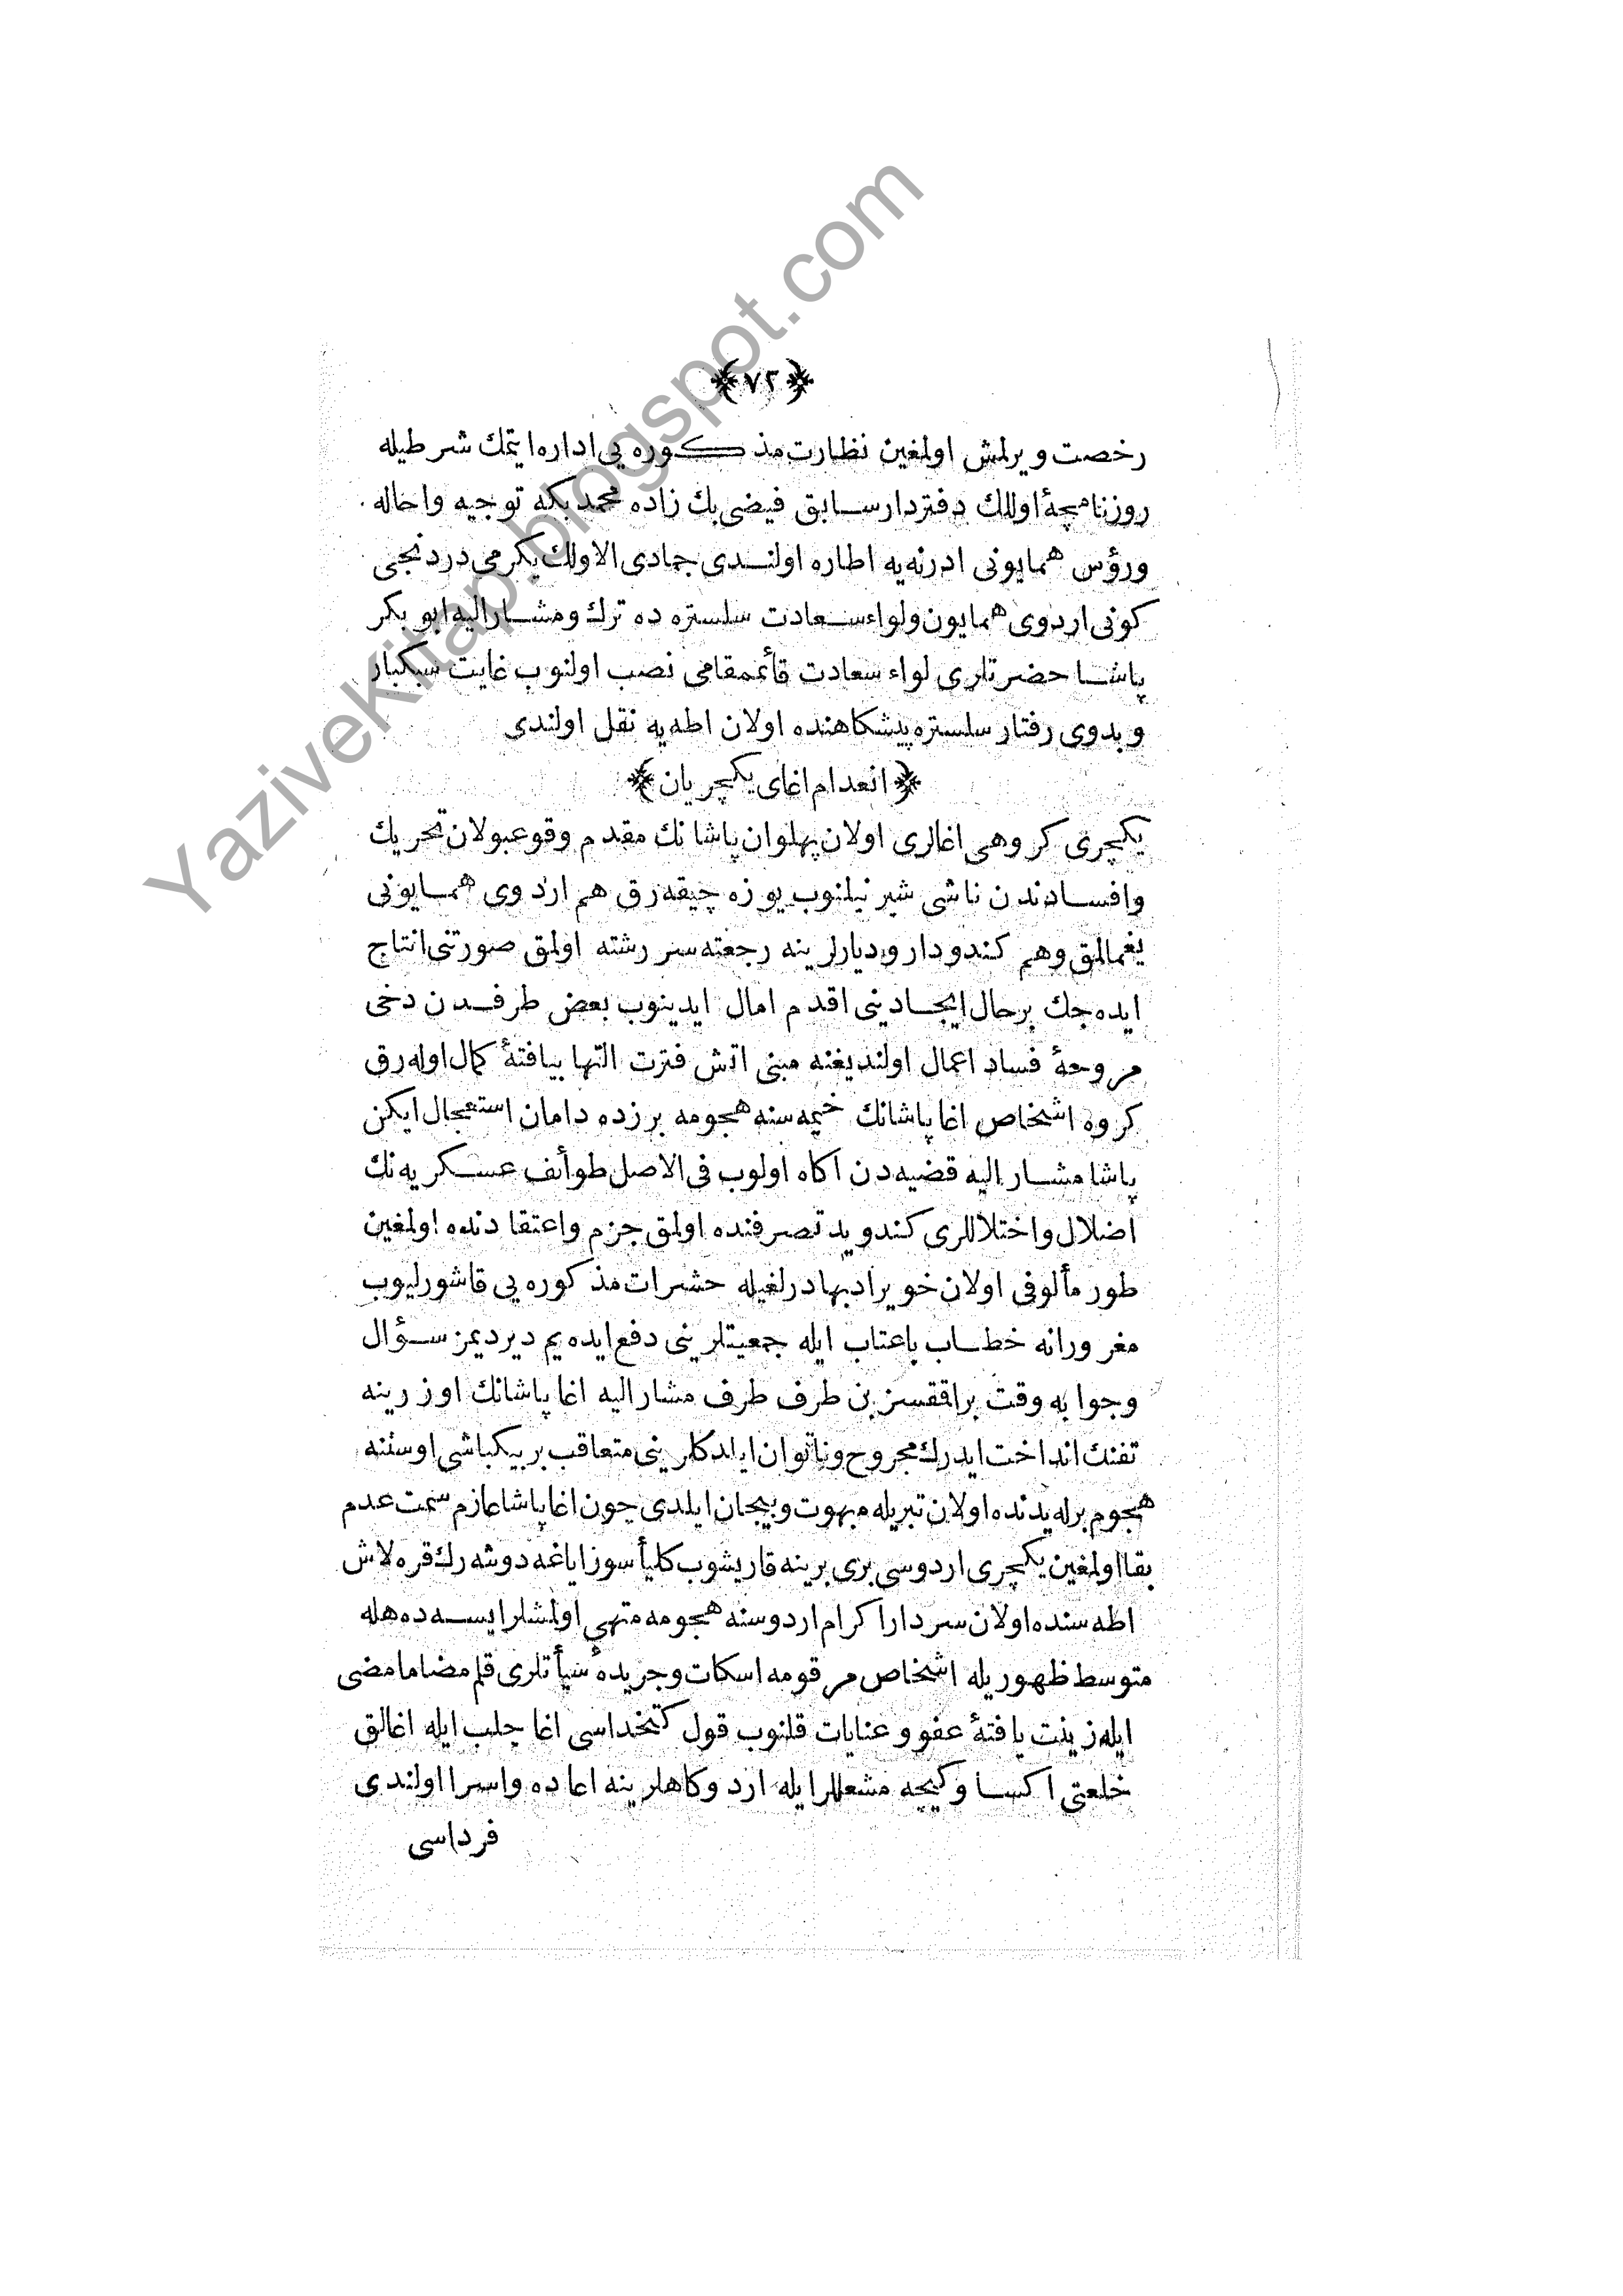 ﴿ ٧٢ ﴾
رخصت ویرلمش اولمغین نظارت مذکوره یی اداره ایتمك شرطیله
روزنامچهٔ اوللك دفتردار سابق فیضی بك زاده محمد بکه توجیه واحاله
ورؤس همایونی ادرنه یه اطاره اولندی جمادی الاولك یکرمی دردنجی
کونی اردوی همایون ولواء سعادت سلستره ده ترك ومشارالیه ابو بکر
پاشا حضرتلری لواء سعادت قائممقامی نصب اولنوب غایت سبکبار
و بدوی رفتار سلستره پیشکاهنده اولان اطه یه نقل اولندی
﴿ انعدام اغای یکیچریان ﴾
یکیچری کروهی اغالری اولان پهلوان پاشانك مقدم وقوعبولان تحریك
وافسادندن ناشی شیر نیلنوب یوزه چیقه رق هم اردوی همایونی
یغمالمق وهم کندو دار ودیارلرینه رجعته سر رشته اولمق صورتنی انتاج
ایده جك برحال ایجادینی اقدم امال ایدینوب بعض طرفدن دخی
مروحهٔ فساد اعمال اولندیغنه مبنی اتش فترت التها بیافتهٔ کمال اوله رق
کروه اشخاص اغا پاشانك خیمه سنه هجومه برزده دامان استعجال ایکن
پاشا مشار الیه قضیه دن اکاه اولوب فی الاصل طوائف عسکریه نك
اضلال واختلاللری کندو ید تصرفنده اولمق جزم واعتقادنده اولمغین
طور مألوفی اولان خویراد بهادرلغیله حشرات مذکوره یی قاشورلیوب
مغرورانه خطاب باعتاب ایله جمعیتلرینی دفع ایده یم دیردیمز سؤال
وجوابه وقت براققسزین طرف طرف مشار الیه اغا پاشانك اوزرینه
تفنك انداخت ایدرك مجروح وناتوان ایلدکلرینی متعاقب بر بیکباشی اوستنه
هجوم برله یدنده اولان تبریله مبهوت وبیجان ایلدی چون اغا پاشا عازم سمت عدم
بقا اولمغین یکیچری اردوسی بری برینه قاریشوب کلیأ سوز ایاغه دوشه رك قره لاش
اطه سنده اولان سردار اکرام اردوسنه هجومه متهی اولمشلر ایسه ده هله
متوسط ظهوریله اشخاص مرقومه اسکات وجریدهٔ سیأتلری قلم مضا مامضی
ایله زینت یافتهٔ عفو و عنایات قلنوب قول کتخداسی اغا جلب ایله اغالق
خلعتی اکسا وکیجه مشعللر ایله اردوکاهلرینه اعاده واسرا اولندی
فرداسی
YaziveKitap.blogspot.com